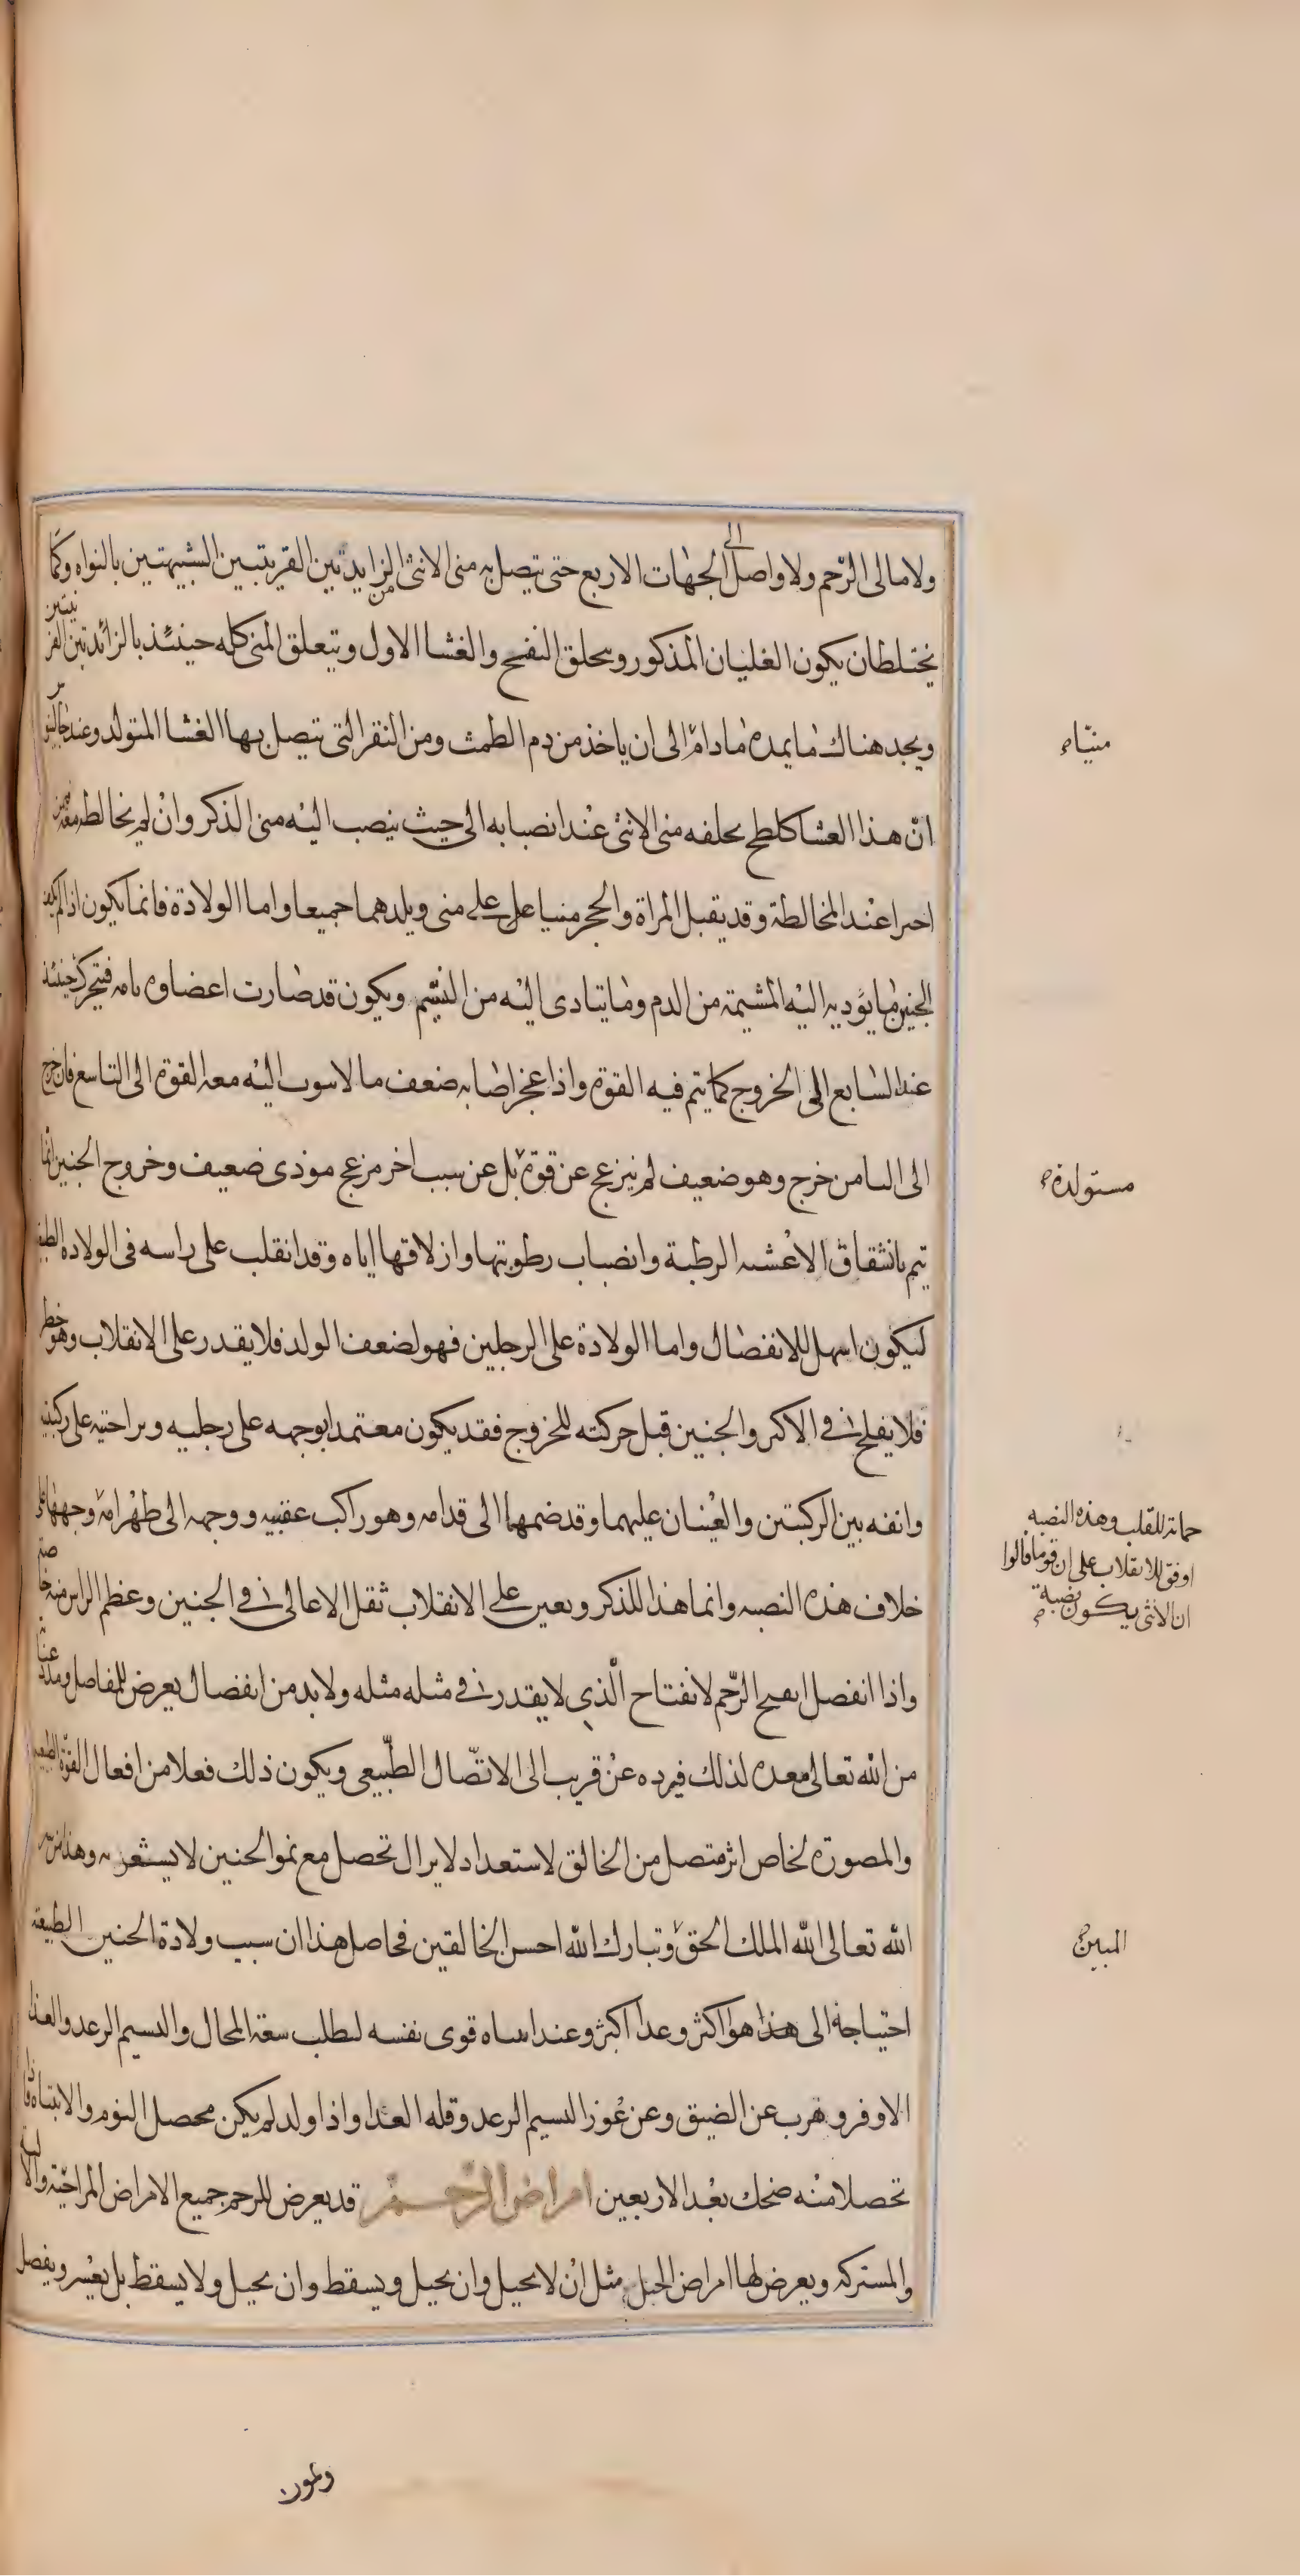 ولا مالى الرّحم ولا واصل الى الجهات الاربع حتى تيصل به منى الانثى من الزايدتين القريتبين الشبيهتين بالنواه وكما
يختلطان يكون الغليان المذكور ويحلق النفخ والغشا الاول ويتعلق المنى كله حينئذ بالزائدتين القر نيتين
ويجد هناك ما يمده ما دام الى ان ياخذ من دم الطمث ومن النقر التى تتصل بها الغشا المتولد وعند
انّ هذا الغشا كلطخ يخلفه منى الانثى عند انصبابه الى حيث ينصب اليه منى الذكر وان لم يخالطه معه من
عند المخالطة وقد يقبل المراة والحجر منيا على على منى ويلدهما جميعا واما الولادة فانما يكون اذا لم يكف
الجنين ما يؤديه اليه المشيمة من الدم وما يتادى اليه من النسيم ويكون قد صارت اعضاوه تامه فيتحرك حينئذ
عند السابع الى الخروج كما يتم فيه القوة واذا عجز اصابه ضعف ما لا سوب اليه معه القوة الى التاسع فان خرج
الى الثامن خرج وهو ضعيف لم ينزعج عن قوة بل عن سبب اخر مزعج موذى ضعيف وخروج الجنين انما
يتم بانشقاق الاغشيه الرطبة وانصباب رطوبتها وازلاقها اياه وقد انقلب على راسه فى الولاده الطبيعيه
ليكون اسهل للانفصال واما الولادة على الرجلين فهو لضعف الولد فلا يقدر على الانقلاب وهو خطر
فلا يفلح فى الاكثر والجنين قبل حركته للخروج فقد يكون معتمدا بوجهه على رجليه وبراحتيه على ركبتيه
وانفه بين الركبتين والعينان عليهما وقد ضمهما الى قدامه وهو راكب عقبيه ووجهه الى ظهر امه وجهها على
خلاف هذه النصبه وانما هذا للذكر ويعين على الانقلاب ثقل الاعالى فى الجنين وعظم الراس منه خاصه
واذا انفصل انفتح الرّحم لانفتاح الّذى لا يقدر فى مثله مثله ولا بد من انفصال يعرض للمفاصل ومدد عناية
من الله تعالى معده لذلك فيرده عن قريب الى الاتّصال الطّبيعى ويكون ذلك فعلا من افعال القوّة الطبيعية
والمصورة لخاص اثر متصل من الخالق لاستعداد لا يزال تحصل مع نمو الجنين لا يشعر به وهذا من سر
الله تعالى الله الملك الحق وتبارك الله احسن الخالقين فحاصل هذا ان سبب ولادة الجنين الطبيعة
احتياجه الى هذا هوا اكثر وغدا اكثر وعند انتباه قوى نفسه لطلب سعة المجال والنسيم الرغد والغذا
الاوفر وهرب عن الضيق وعن عوز النسيم الرغد وقله الغذا واذا ولد لم يكن محصل النوم والانتباه فاذا
تحصلا منه ضحك بعد الاربعين امراض الرّحــم قد يعرض للرحم جميع الامراض المزاجية والالية
والمشتركه ويعرض لها امراض الحبل مثل ان لا يحبل وان يحبل ويسقط وان يحبل ولا يسقط بل يعسر ويفصل
منيّا
مستولدة
حماته للقلب وهذه النصبه
اوفق للانقلاب على ان قوما قالوا
ان الانثى يكون نصبة
المبين